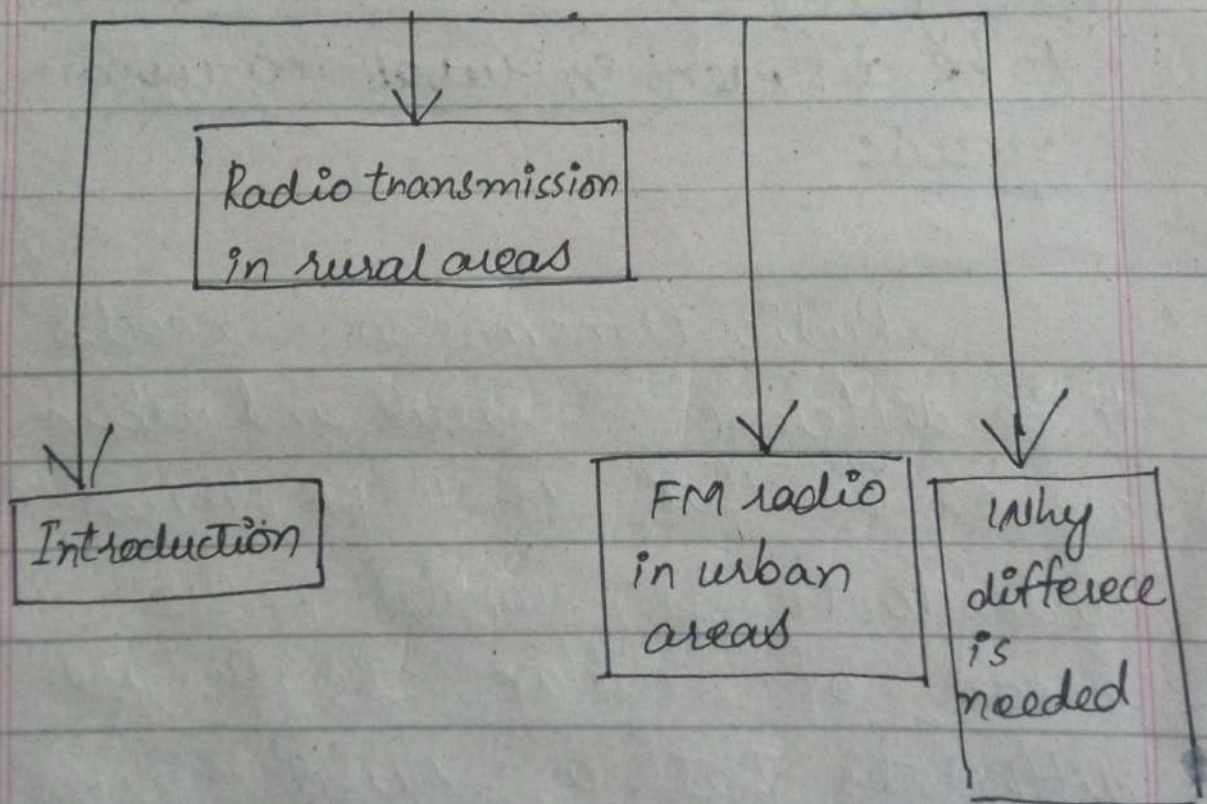 Radio transmission
in rural areas
Introduction
FM radio
in urban
areas
Why
differece
is
needed